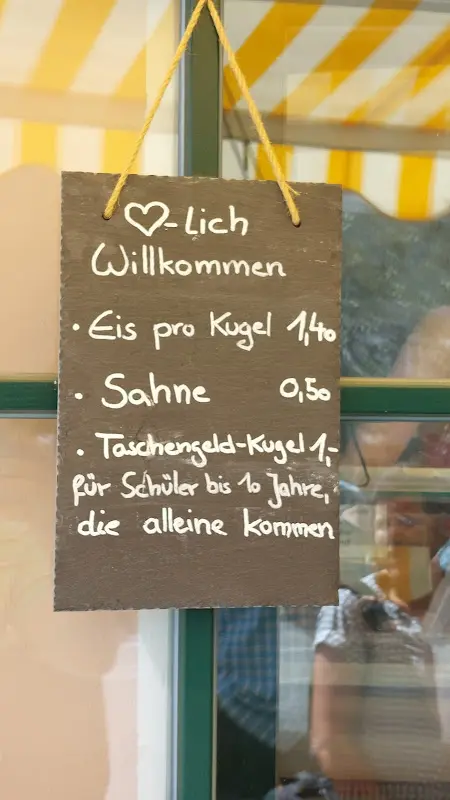 ♡-lich
Willkommen
· Eis pro Kugel 1,40
· Sahne 0,50
· Taschengeld-Kugel 1,-
für Schüler bis 10 Jahre,
die alleine kommen